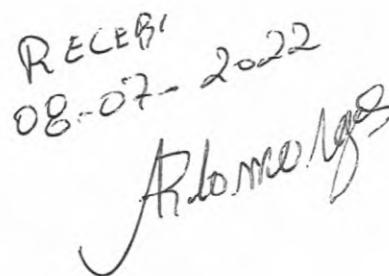 RECEBI
08-07-2022